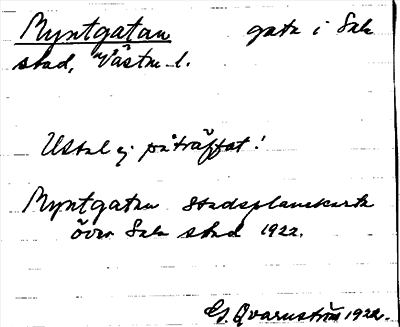 Myntgatan gata i Sala
stad, Västm. l.
Uttal ej påträffat!
Myntgatan Stadsplanekarta
över Sala stad 1922.
G. Qvarnström 1922.